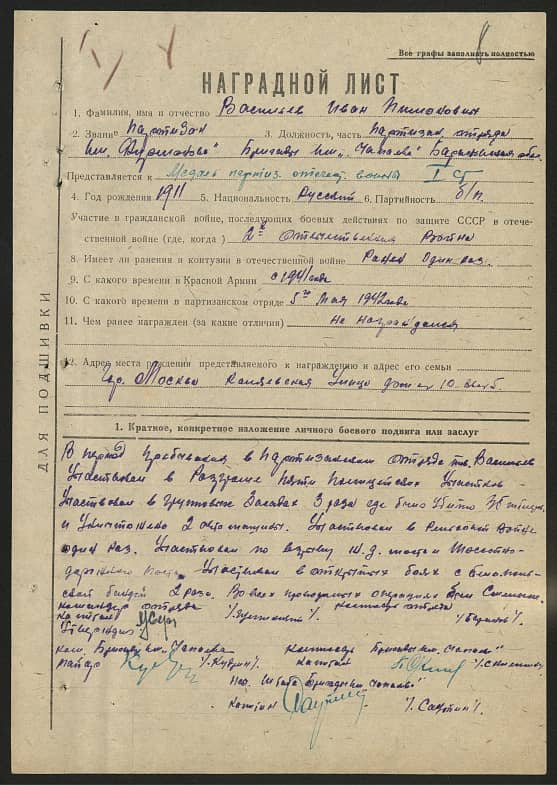 8
Все графы заполнять полностью
НАГРАДНОЙ ЛИСТ
1. Фамилия, имя и отчество Васильев Иван
2. Звание Партизан 3. Должность, часть Партизан отряда
им. Фурманова" Бригады им „Чапаева" обл.
Представляется к Медаль партиз. отечест. войны I ст
4. Год рождения 1911 5. Национальность Русский 6. Партийность б/п.
Участие в гражданской войне, последующих боевых действиях по защите СССР в отече-
ственной войне (где, когда) Отечественная Война
8. Имеет ли ранения и контузии в отечественной войне Ранен Один раз.
9. С какого времени в Красной Армии с 1941 года
10. С какого времени в партизанском отряде 5го Мая 1942 года
11. Чем ранее награжден (за какие отличия) не награждался
12. Адрес места рождения представляемого к награждению и адрес его семьи
гор. Москва Каляевская Улица дом № 10.
ДЛЯ ПОДШИВКИ
1. Краткое, конкретное изложение личного боевого подвига или заслуг
В период пребывания в Партизанском отряде тов. Васильев
Участвовал в Разгроме пяти Полицейских Участков -
Участвовал в групповых Засадах 3 раза где было Убито
и Уничтожено 2 автомашины. Участвовал в Рельсовой Войне
один раз. Участвовал по взрыву ж.д. моста и Шоссейно-
моста. Участвовал в открытых боях с
бандой 2 раза. Во всех проводимых операциях Был
командир отряда комиссар отряда
капитан
Утверждаю
ком. Бригады им. Чапаева комиссар Бригады им. Чапаева"
майор /.Кудрин/. Капитан
Нач. Штаба Бригады им Чапаева"
Капитан